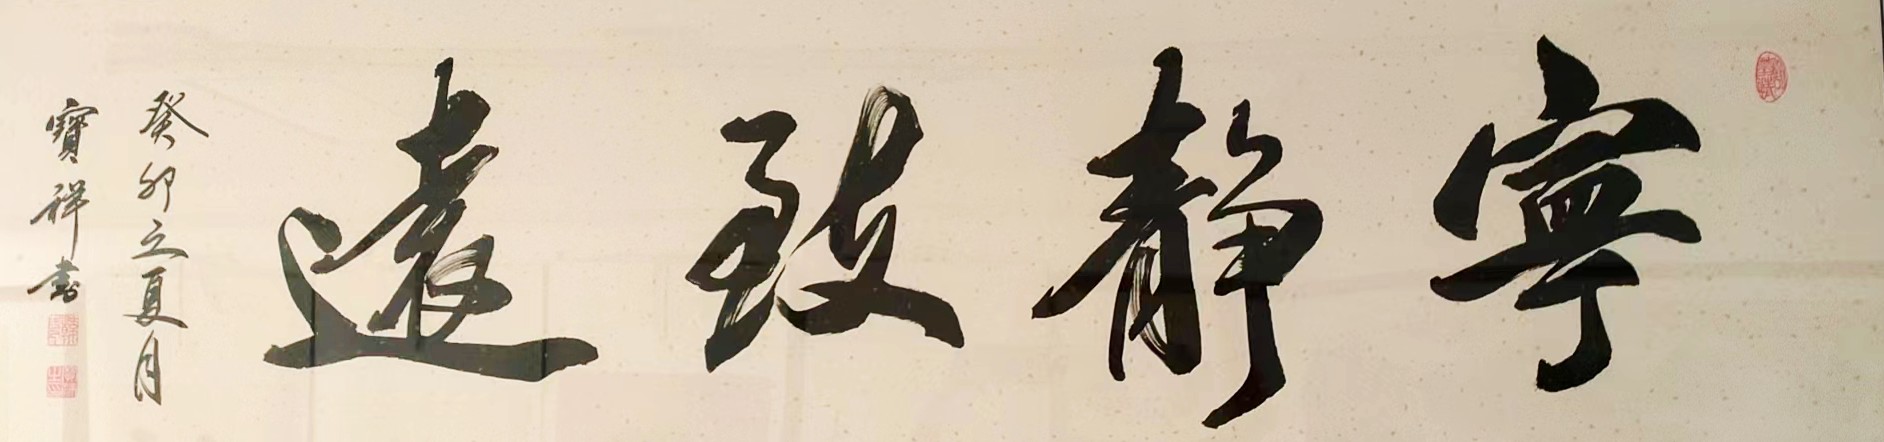 寧靜致遠
癸卯立夏月
寶祥書